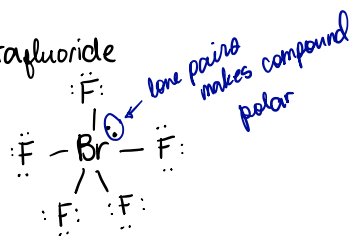 rafluoride
lone pairs
makes compound
polar
F
F – Br – F
F F